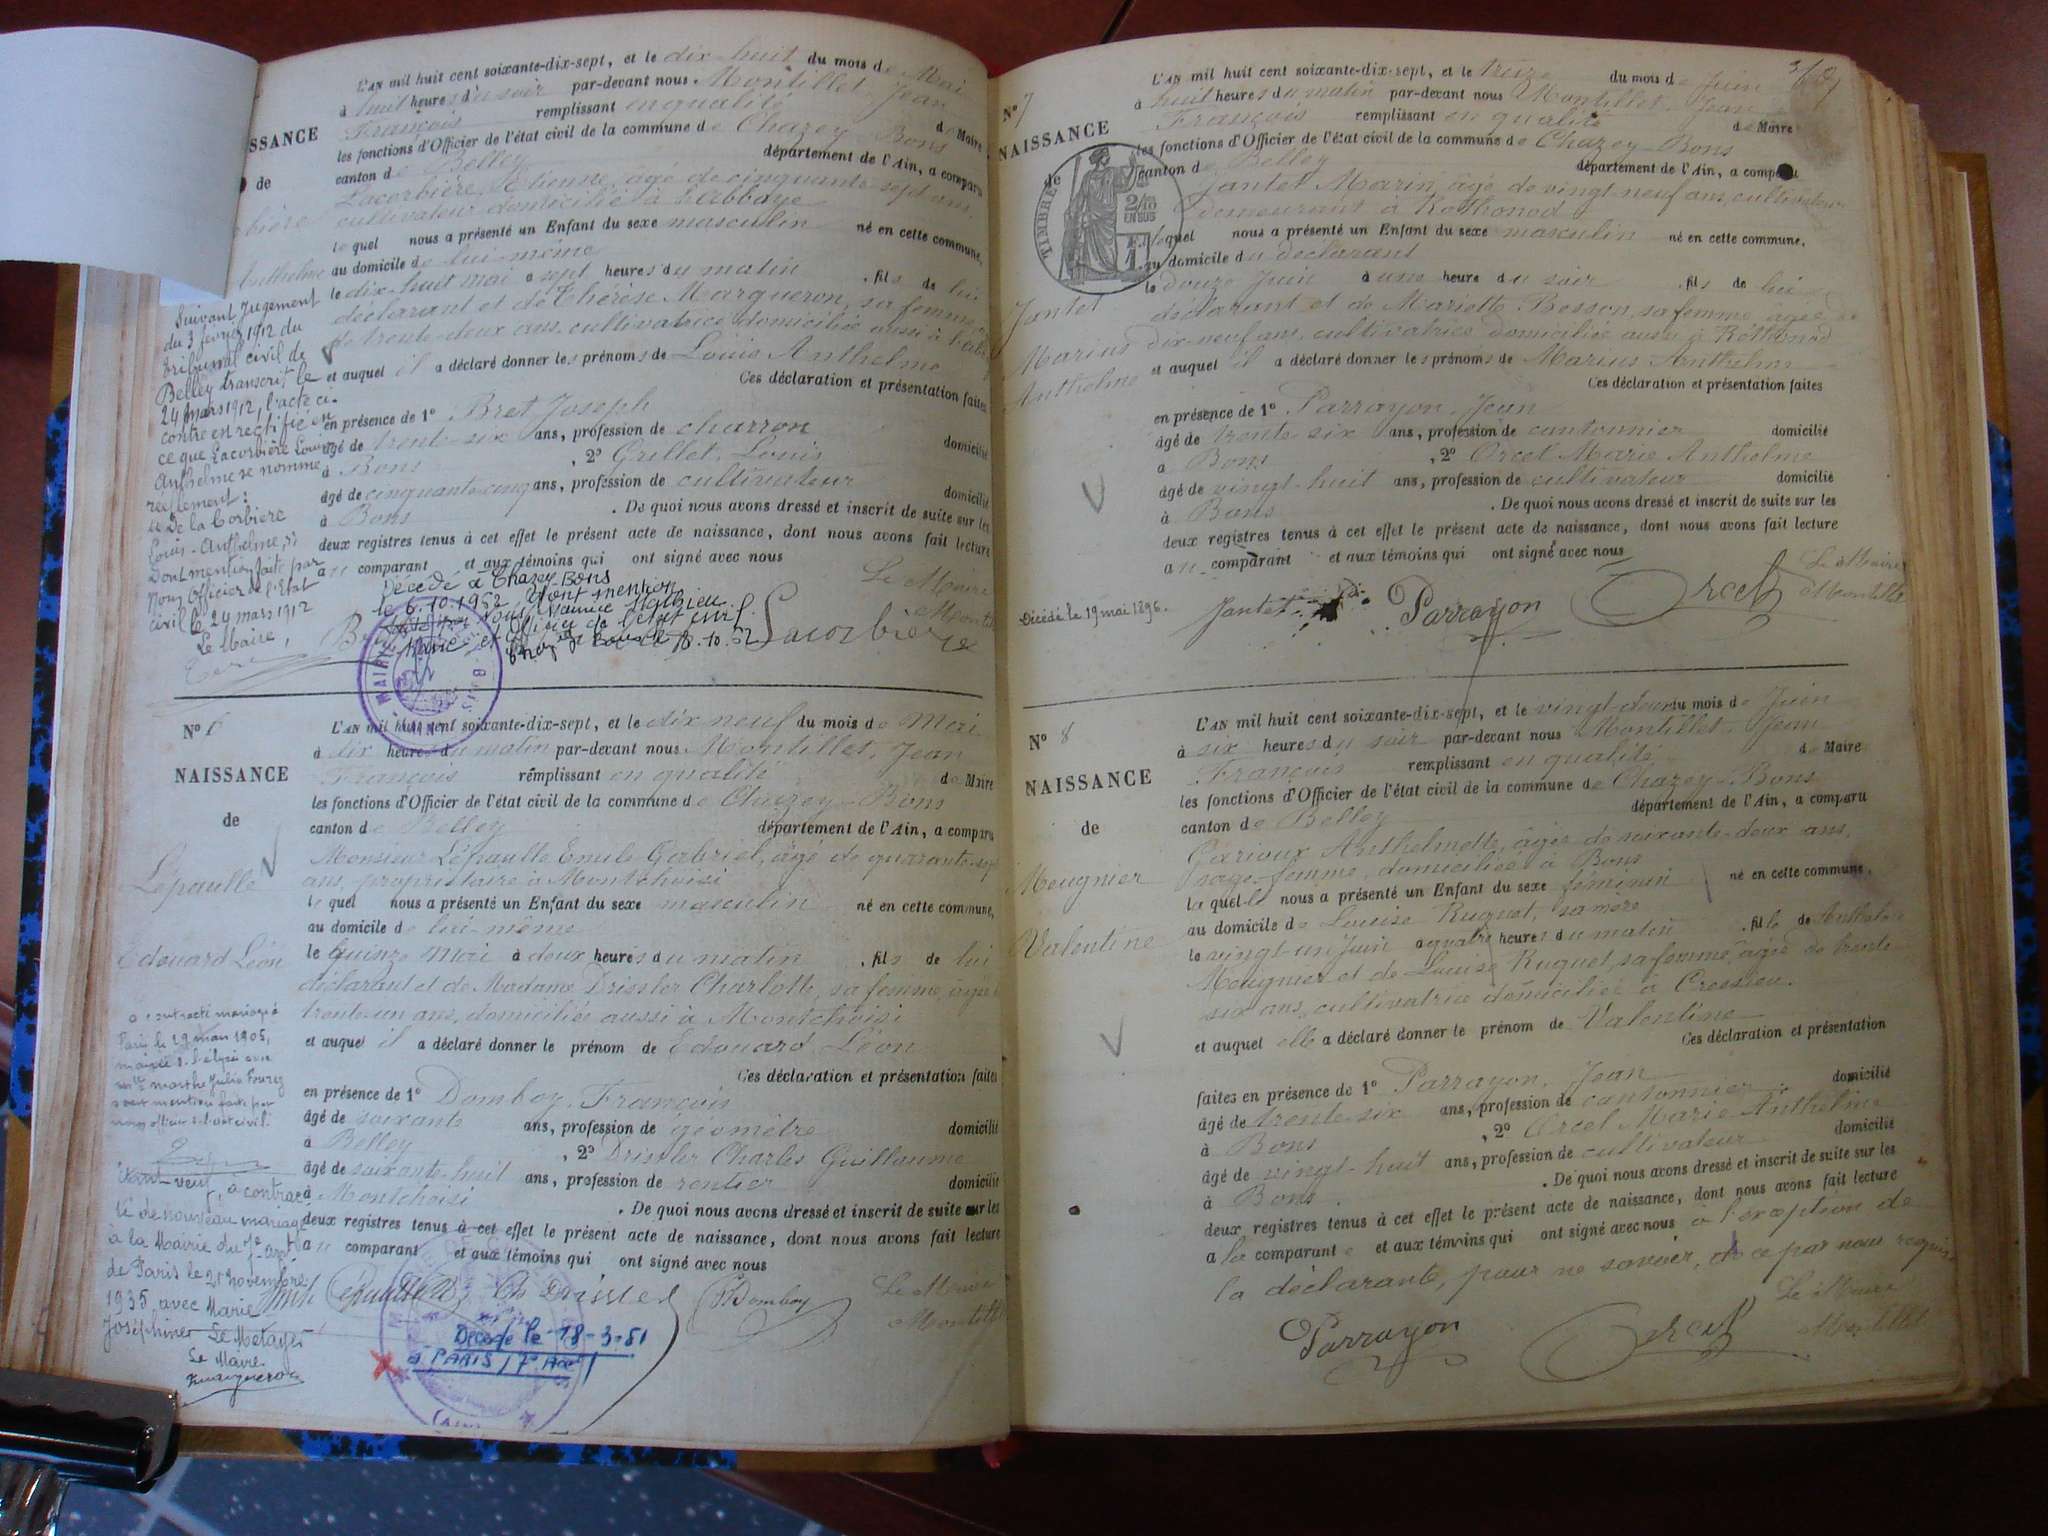 L'AN mil huit cent soixante-dix-sept, et le dix-huit du mois de Mai
à huit heures du soir par-devant nous Montillet Jean
François remplissant en qualité de Maire
les fonctions d'Officier de l'état civil de la commune de Chazey-Bons
canton de Belley département de l'Ain, a comparu
Lacorbière Etienne, âgé de cinquante-sept ans,
cultivateur domicilié à l'Abbaye
lequel nous a présenté un Enfant du sexe masculin né en cette commune,
au domicile de lui-même
le dix-huit mai à sept heures du matin, fils de lui
déclarant et de Thérèse Marqueron, sa femme,
de trente-deux ans, cultivatrice, domiciliée aussi à
et auquel il a déclaré donner les prénoms de Louis Anthelme
Ces déclaration et présentation faites
en présence de 1° Bret Joseph
âgé de trente-six ans, profession de charron domicilié
à Bons, 2° Grillet Louis
âgé de cinquante-cinq ans, profession de cultivateur domicilié
à Bons. De quoi nous avons dressé et inscrit de suite sur les
deux registres tenus à cet effet le présent acte de naissance, dont nous avons fait lecture
au comparant et aux témoins qui ont signé avec nous
Le Maire
Lacorbière
SSANCE
de
bière
Anthelme
Suivant Jugement
du 3 février 1912 du
tribunal civil de
Belley transcrit le
24 mars 1912, l'acte ci-
contre en rectifié en
ce que Lacorbière Louis
Anthelme se nomme
réellement:
"De la Corbière
Louis-Anthelme,"
Dont mention faite par
Nous Officier de l'Etat
civil le 24 mars 1912
Le Maire,
Décédé à Chazey-Bons
le 6.10.1952 Dont mention
MAIRIE
N° 6
NAISSANCE
de
Lépaulle
Edouard Léon
L'AN mil huit cent soixante-dix-sept, et le dix neuf du mois de Mai
à dix heures du matin par-devant nous Montillet, Jean
François remplissant en qualité de Maire
les fonctions d'Officier de l'état civil de la commune de Chazey-Bons
canton de Belley département de l'Ain, a comparu
Monsieur Lépaulle Emile Gabriel, âgé de quarante-sept
ans, propriétaire à Montchoisi
lequel nous a présenté un Enfant du sexe masculin né en cette commune,
au domicile de lui-même
le quinze Mai à deux heures du matin, fils de lui
déclarant et de Madame Drissler Charlotte, sa femme, âgée
trente-un ans, domiciliée aussi à Montchoisi
et auquel il a déclaré donner le prénom de Edouard Léon
Ces déclaration et présentation faites
en présence de 1° Domboy, François
âgé de soixante ans, profession de géomètre domicilié
à Belley, 2° Drissler Charles Guillaume
âgé de soixante-huit ans, profession de rentier domicilié
à Montchoisi. De quoi nous avons dressé et inscrit de suite sur les
deux registres tenus à cet effet le présent acte de naissance, dont nous avons fait lecture
au comparant et aux témoins qui ont signé avec nous
Le Maire
Ch Drissler
Domboy
a contracté mariage à
Paris le 29 mars 1905,
Marthe Julie
Etant veuf, a contrac-
té de nouveau mariage
à la Mairie du 7e arrt
de Paris le 21 novembre
1935, avec Marie
Joséphine Le Metayer
Le Maire
Décédé le 18-3-51
à PARIS (7e Arrt)
N° 7
NAISSANCE
de
TIMBRE
2/10
EN SUS
Jantet
Marius
Anthelme
L'AN mil huit cent soixante-dix-sept, et le treize du mois de Juin
à huit heures du matin par-devant nous Montillet Jean
François remplissant en qualité de Maire
les fonctions d'Officier de l'état civil de la commune de Chazey-Bons
canton de Belley département de l'Ain, a comparu
Jantet Marin, âgé de vingt-neuf ans, cultivateur
demeurant à Rothonod
lequel nous a présenté un Enfant du sexe masculin né en cette commune,
au domicile du déclarant
le douze Juin à une heure du soir, fils de lui
déclarant et de Mariette Besson, sa femme, âgée de
dix-neuf ans, cultivatrice domiciliée aussi à Rothonod
et auquel il a déclaré donner les prénoms de Marius Anthelme
Ces déclaration et présentation faites
en présence de 1° Parrayon, Jean
âgé de trente six ans, profession de cantonnier domicilié
à Bons, 2° Orcel Marie Anthelme
âgé de vingt-huit ans, profession de cultivateur domicilié
à Bons. De quoi nous avons dressé et inscrit de suite sur les
deux registres tenus à cet effet le présent acte de naissance, dont nous avons fait lecture
au comparant et aux témoins qui ont signé avec nous
Le Maire
Montillet
Décédé le 19 mai 1896.
Jantet Parrayon Orcel
N° 8
NAISSANCE
de
Meugnier
Valentine
L'AN mil huit cent soixante-dix-sept, et le vingt-deux du mois de Juin
à six heures du soir par-devant nous Montillet Jean
François remplissant en qualité de Maire
les fonctions d'Officier de l'état civil de la commune de Chazey-Bons
canton de Belley département de l'Ain, a comparu
Anthelmette, âgée de soixante-deux ans,
sage-femme, domiciliée à Bons
laquelle nous a présenté un Enfant du sexe féminin né en cette commune,
au domicile de Louise Ruguet, sa mère
le vingt-un Juin à quatre heures du matin, fille de Anthelme
Meugnier et de Louise Ruguet, sa femme âgée de trente
six ans, cultivatrice domiciliée à Cressieu.
et auquel elle a déclaré donner le prénom de Valentine
Ces déclaration et présentation
faites en présence de 1° Parrayon, Jean
âgé de trente six ans, profession de cantonnier domicilié
à Bons, 2° Orcel Marie Anthelme
âgé de vingt-huit ans, profession de cultivateur domicilié
à Bons. De quoi nous avons dressé et inscrit de suite sur les
deux registres tenus à cet effet le présent acte de naissance, dont nous avons fait lecture
à la comparante et aux témoins qui ont signé avec nous à l'exception de
la déclarante, pour ne savoir, de ce par nous requise
Le Maire
Montillet
Parrayon Orcel